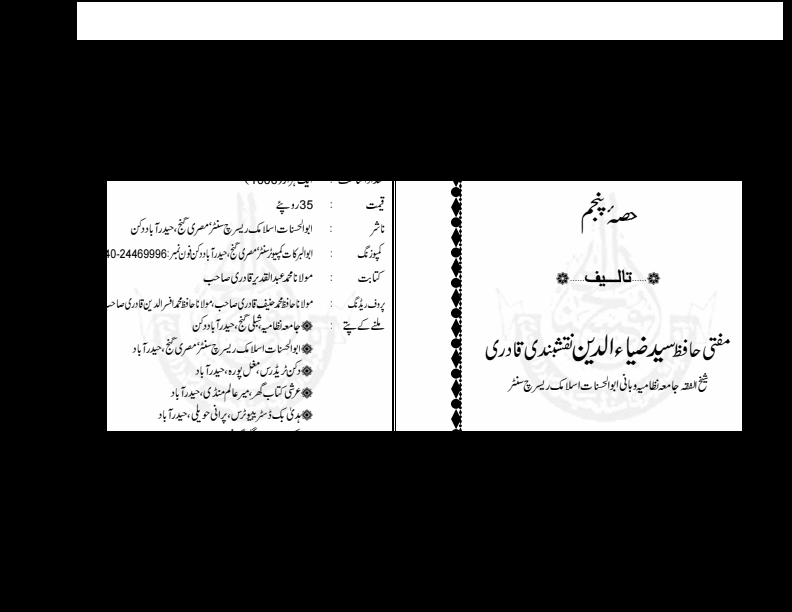 حصہ پنجم
تالیف
مفتی حافظ سید ضیاء الدین نقشبندی قادری
شیخ الفقہ جامعہ نظامیہ و بانی ابوالحسنات اسلامک ریسرچ سنٹر
قیمت : 35 روپئے
ناشر : ابوالحسنات اسلامک ریسرچ سنٹر' مصری گنج، حیدرآباد دکن
کمپوزنگ : ابوالبرکات کمپیوٹر سنٹر' مصری گنج، حیدرآباد دکن فون نمبر: 40-24469996
کتابت : مولانا محمد عبدالقدیر قادری صاحب
پروف ریڈنگ : مولانا حافظ محمد حنیف قادری صاحب، مولانا حافظ محمد افسر الدین قادری
ملنے کے پتے : جامعہ نظامیہ، شبلی گنج، حیدرآباد دکن
ابوالحسنات اسلامک ریسرچ سنٹر' مصری گنج، حیدرآباد
دکن ٹریڈرس، مغل پورہ، حیدرآباد
عرشی کتاب گھر، میر عالم منڈی، حیدرآباد
ہدیٰ بک ڈسٹری بیوٹرس، پرانی حویلی، حیدرآباد